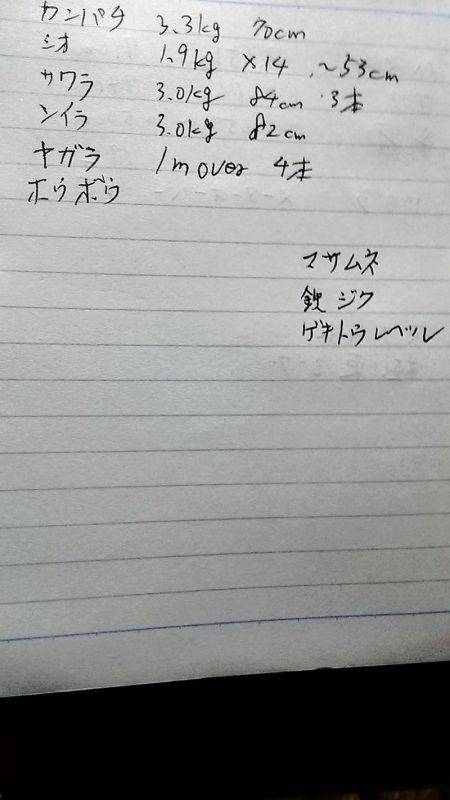 カンパチ 3.3kg 70cm
シオ 1.9kg ×14 ~53cm
サワラ 3.0kg 84cm 3本
シイラ 3.0kg 82cm
ヤガラ 1m over 4本
ホウボウ
マサムネ
鋭ジク
ゲキトウレベル